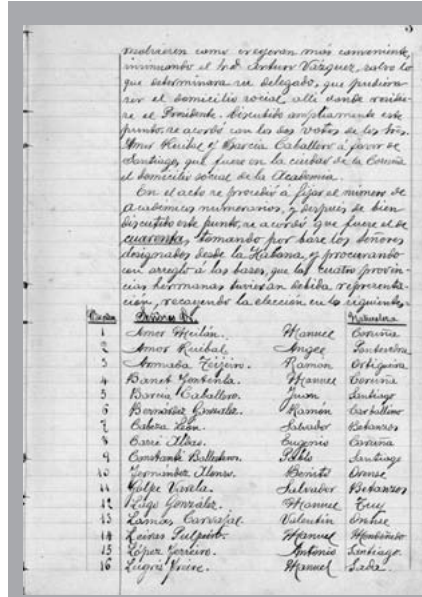 3
resolvieren como creyeran más conveniente,
insinuando el Sr. d. Arturo Vázquez, salvo lo
que determinara su delegado, que pudiera
ser el domicilio social, allí donde residie-
re el Presidente. Discutido ampliamente este
punto, se acordó con los dos votos de los Sres.
Amor Ruibal y Barcia Caballero á favor de
Santiago, que fuese en la ciudad de la Coruña
el domicilio social de la Academia.
En el acto se procedió á fijar el número de
académicos numerarios, y después de bien
discutido este punto, se acordó que fuere el de
cuarenta, tomando por base los señores
designados desde la Habana, y procurando
con arreglo á las bases, que las cuatro provin-
cias hermanas tuvieran debida representa-
ción, recayendo la elección en los siguientes:
Señores D. Naturaleza
1 Amor Meilán. Manuel Coruña
2 Amor Ruibal. Angel Pontevedra
3 Armada Teijeiro. Ramón Ortigueira
4 Banet Fontenla. Manuel Coruña
5 Barcia Caballero. Juan Santiago
6 Bernárdez González. Ramón Carballino
7 Cabeza León. Salvador Betanzos
8 Carré Aldao. Eugenio Coruña
9 Constanti Ballesteros. Pablo Santiago
10 Fernández Alonso. Benito Orense
11 Golpe Varela. Salvador Betanzos
12 Lago González. Manuel Tuy
13 Lamas Carvajal. Valentín Orense
14 Leiras Pulpeiro. Manuel Mondoñedo
15 López Ferreiro. Antonio Santiago
16 Lugrís Freire. Manuel Sada.